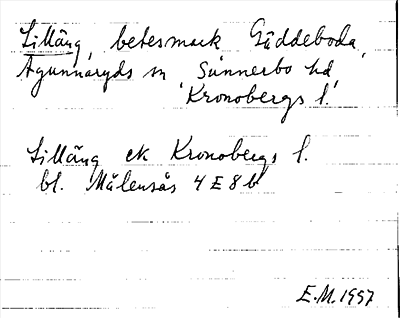 Lilläng, betesmark Gäddeboda,
Agunnaryds sn, Sunnerbo hd,
Kronobergs l.
Lilläng ek Kronobergs l.
bl. Målensås 4E8b
E.M. 1997